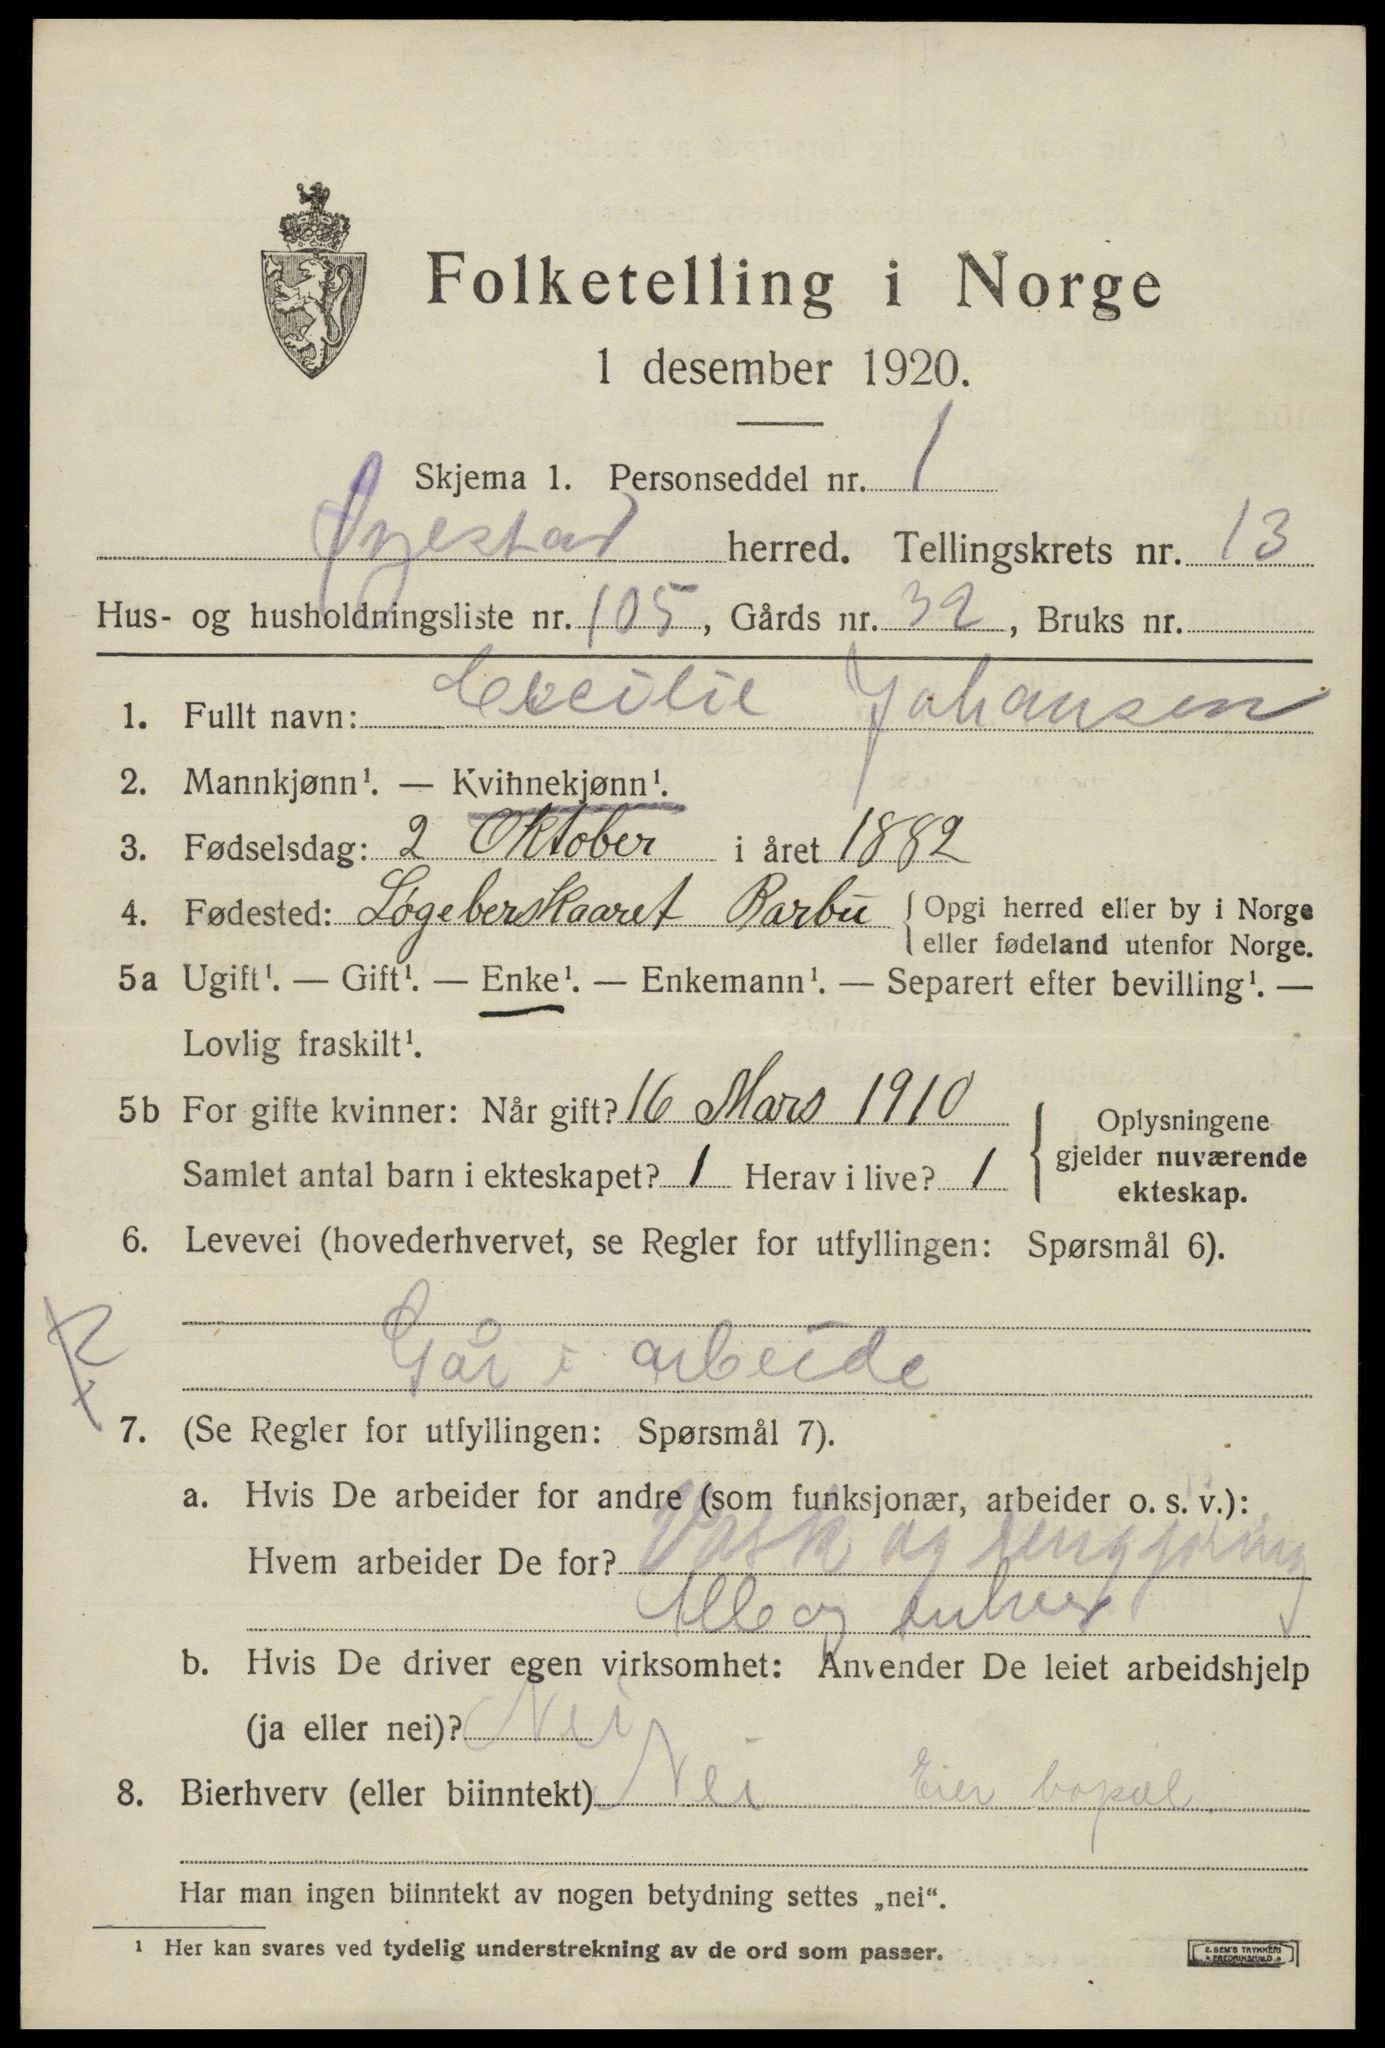 Folketelling i Norge
1 desember 1920.
Skjema 1. Personseddel nr. 1
Øyestad herred. Tellingskrets nr. 13
Hus- og husholdningsliste nr. 105, Gårds nr. 32, Bruks nr.
1. Fullt navn: Cecilie Johansen
2. Mannkjønn¹. — Kvinnekjønn¹.
3. Fødselsdag: 2 Oktober i året 1882
4. Fødested: Løgeberskaaret Barbu { Opgi herred eller by i Norge
eller fødeland utenfor Norge.
5a Ugift¹. — Gift¹. — Enke¹. — Enkemann¹. — Separert efter bevilling¹. —
Lovlig fraskilt¹.
5b For gifte kvinner: Når gift? 16 Mars 1910
Samlet antal barn i ekteskapet? 1 Herav i live? 1
{ Oplysningene
gjelder nuværende
ekteskap.
6. Levevei (hovederhvervet, se Regler for utfyllingen: Spørsmål 6).
Går i arbeide
7. (Se Regler for utfyllingen: Spørsmål 7).
a. Hvis De arbeider for andre (som funksjonær, arbeider o. s. v.):
Hvem arbeider De for? Vask og rengjøring
Alle og enhver
b. Hvis De driver egen virksomhet: Anvender De leiet arbeidshjelp
(ja eller nei)? Nei
8. Bierhverv (eller biinntekt) Nei Eier bopæl
Har man ingen biinntekt av nogen betydning settes „nei“.
¹ Her kan svares ved tydelig understrekning av de ord som passer.
E. SEM'S TRYKKERI
FREDRIKSHALD